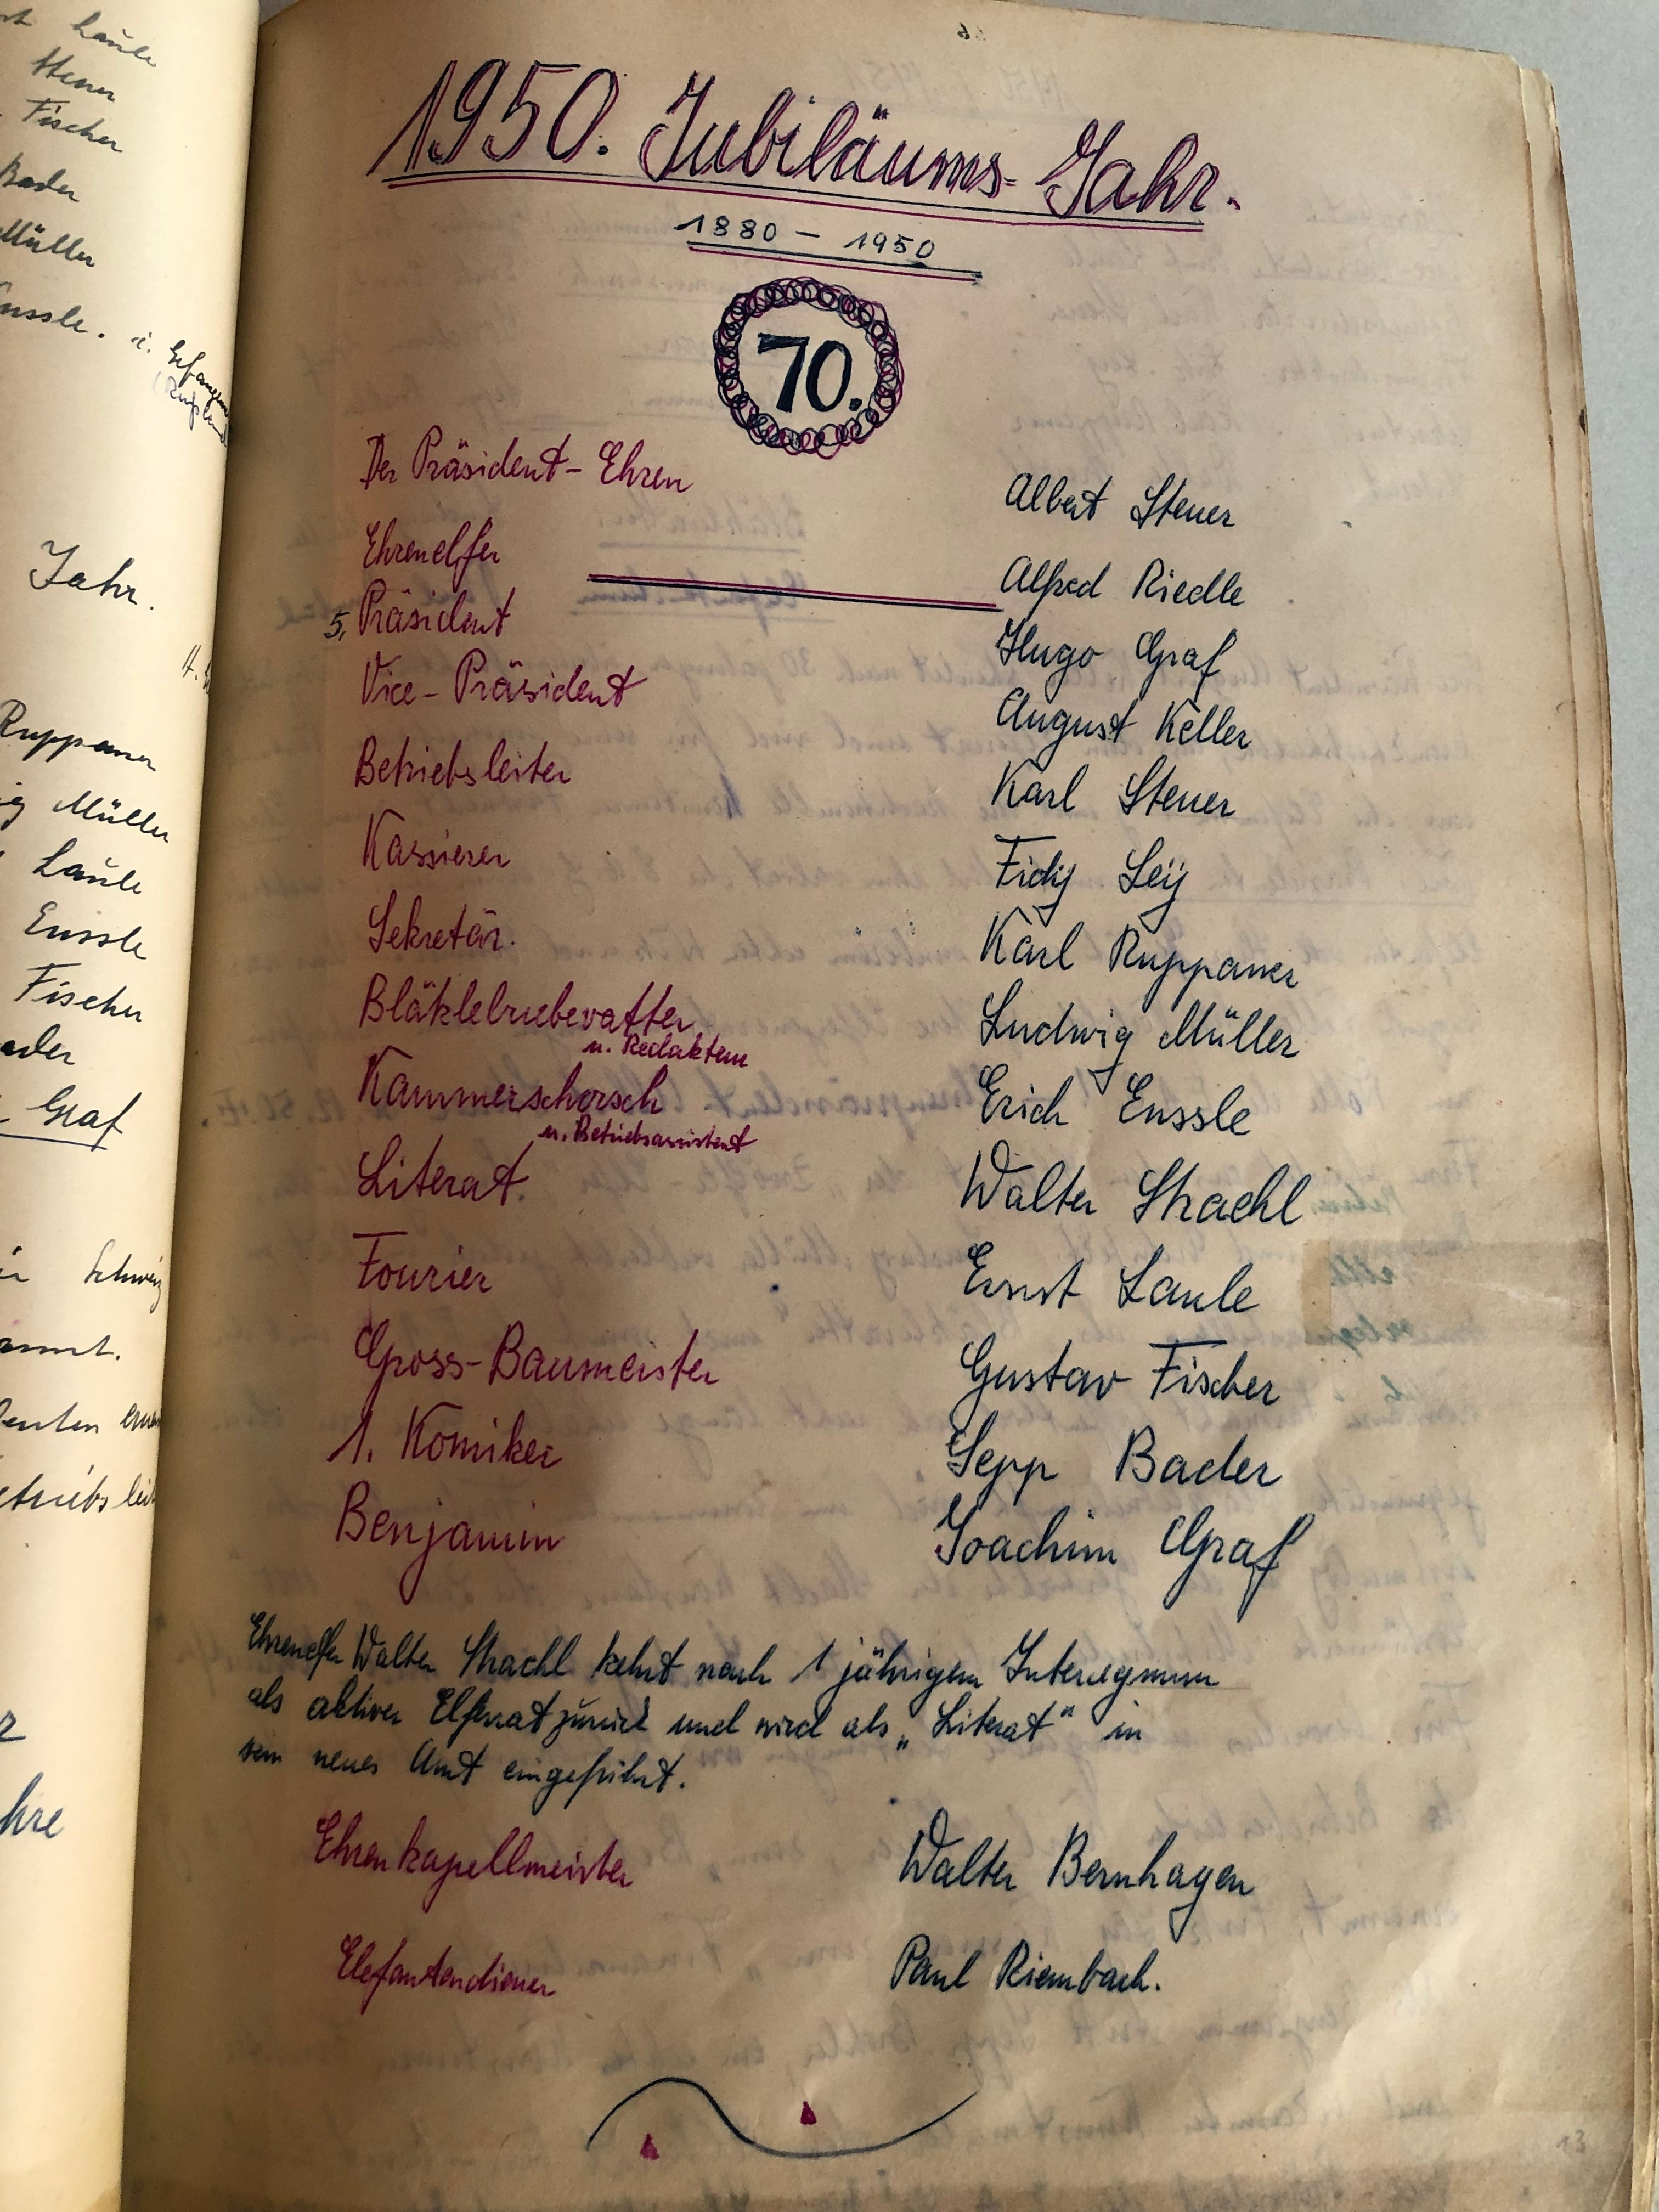 Laule
Steuer
Fischer
Bader
Müller
Enssle. i. Gefangen
(Rußland
Jahr.
Ruppaner
Müller
Laule
Enssle
Fischer
Bader
Graf
Schweiz
1950. Jubiläums-Jahr.
1880 - 1950
70.
Der Präsident-Ehren Albert Steuer
Ehrenelfer Alfred Riedle
5. Präsident Hugo Graf
Vice-Präsident August Keller
Betriebsleiter Karl Steuer
Kassierer Fidy Leÿ
Sekretär. Karl Ruppaner
Bläktlebuebevatter Ludwig Müller
u. Redakteur
Kammerschorsch Erich Enssle
u. Betriebsassistent
Literat. Walter Strachl
Fourier Ernst Laule
Gross-Baumeister Gustav Fischer
1. Komiker Sepp Bader
Benjamin Joachim Graf
Ehrenelfer Walter Strachl kehrt nach 1 jährigem Interregnum
als aktiver Elferrat zurück und wird als „Literat" in
sein neues Amt eingeführt.
Ehrenkapellmeister Walter Bernhagen
Elefantendiener Paul Riembach.
13